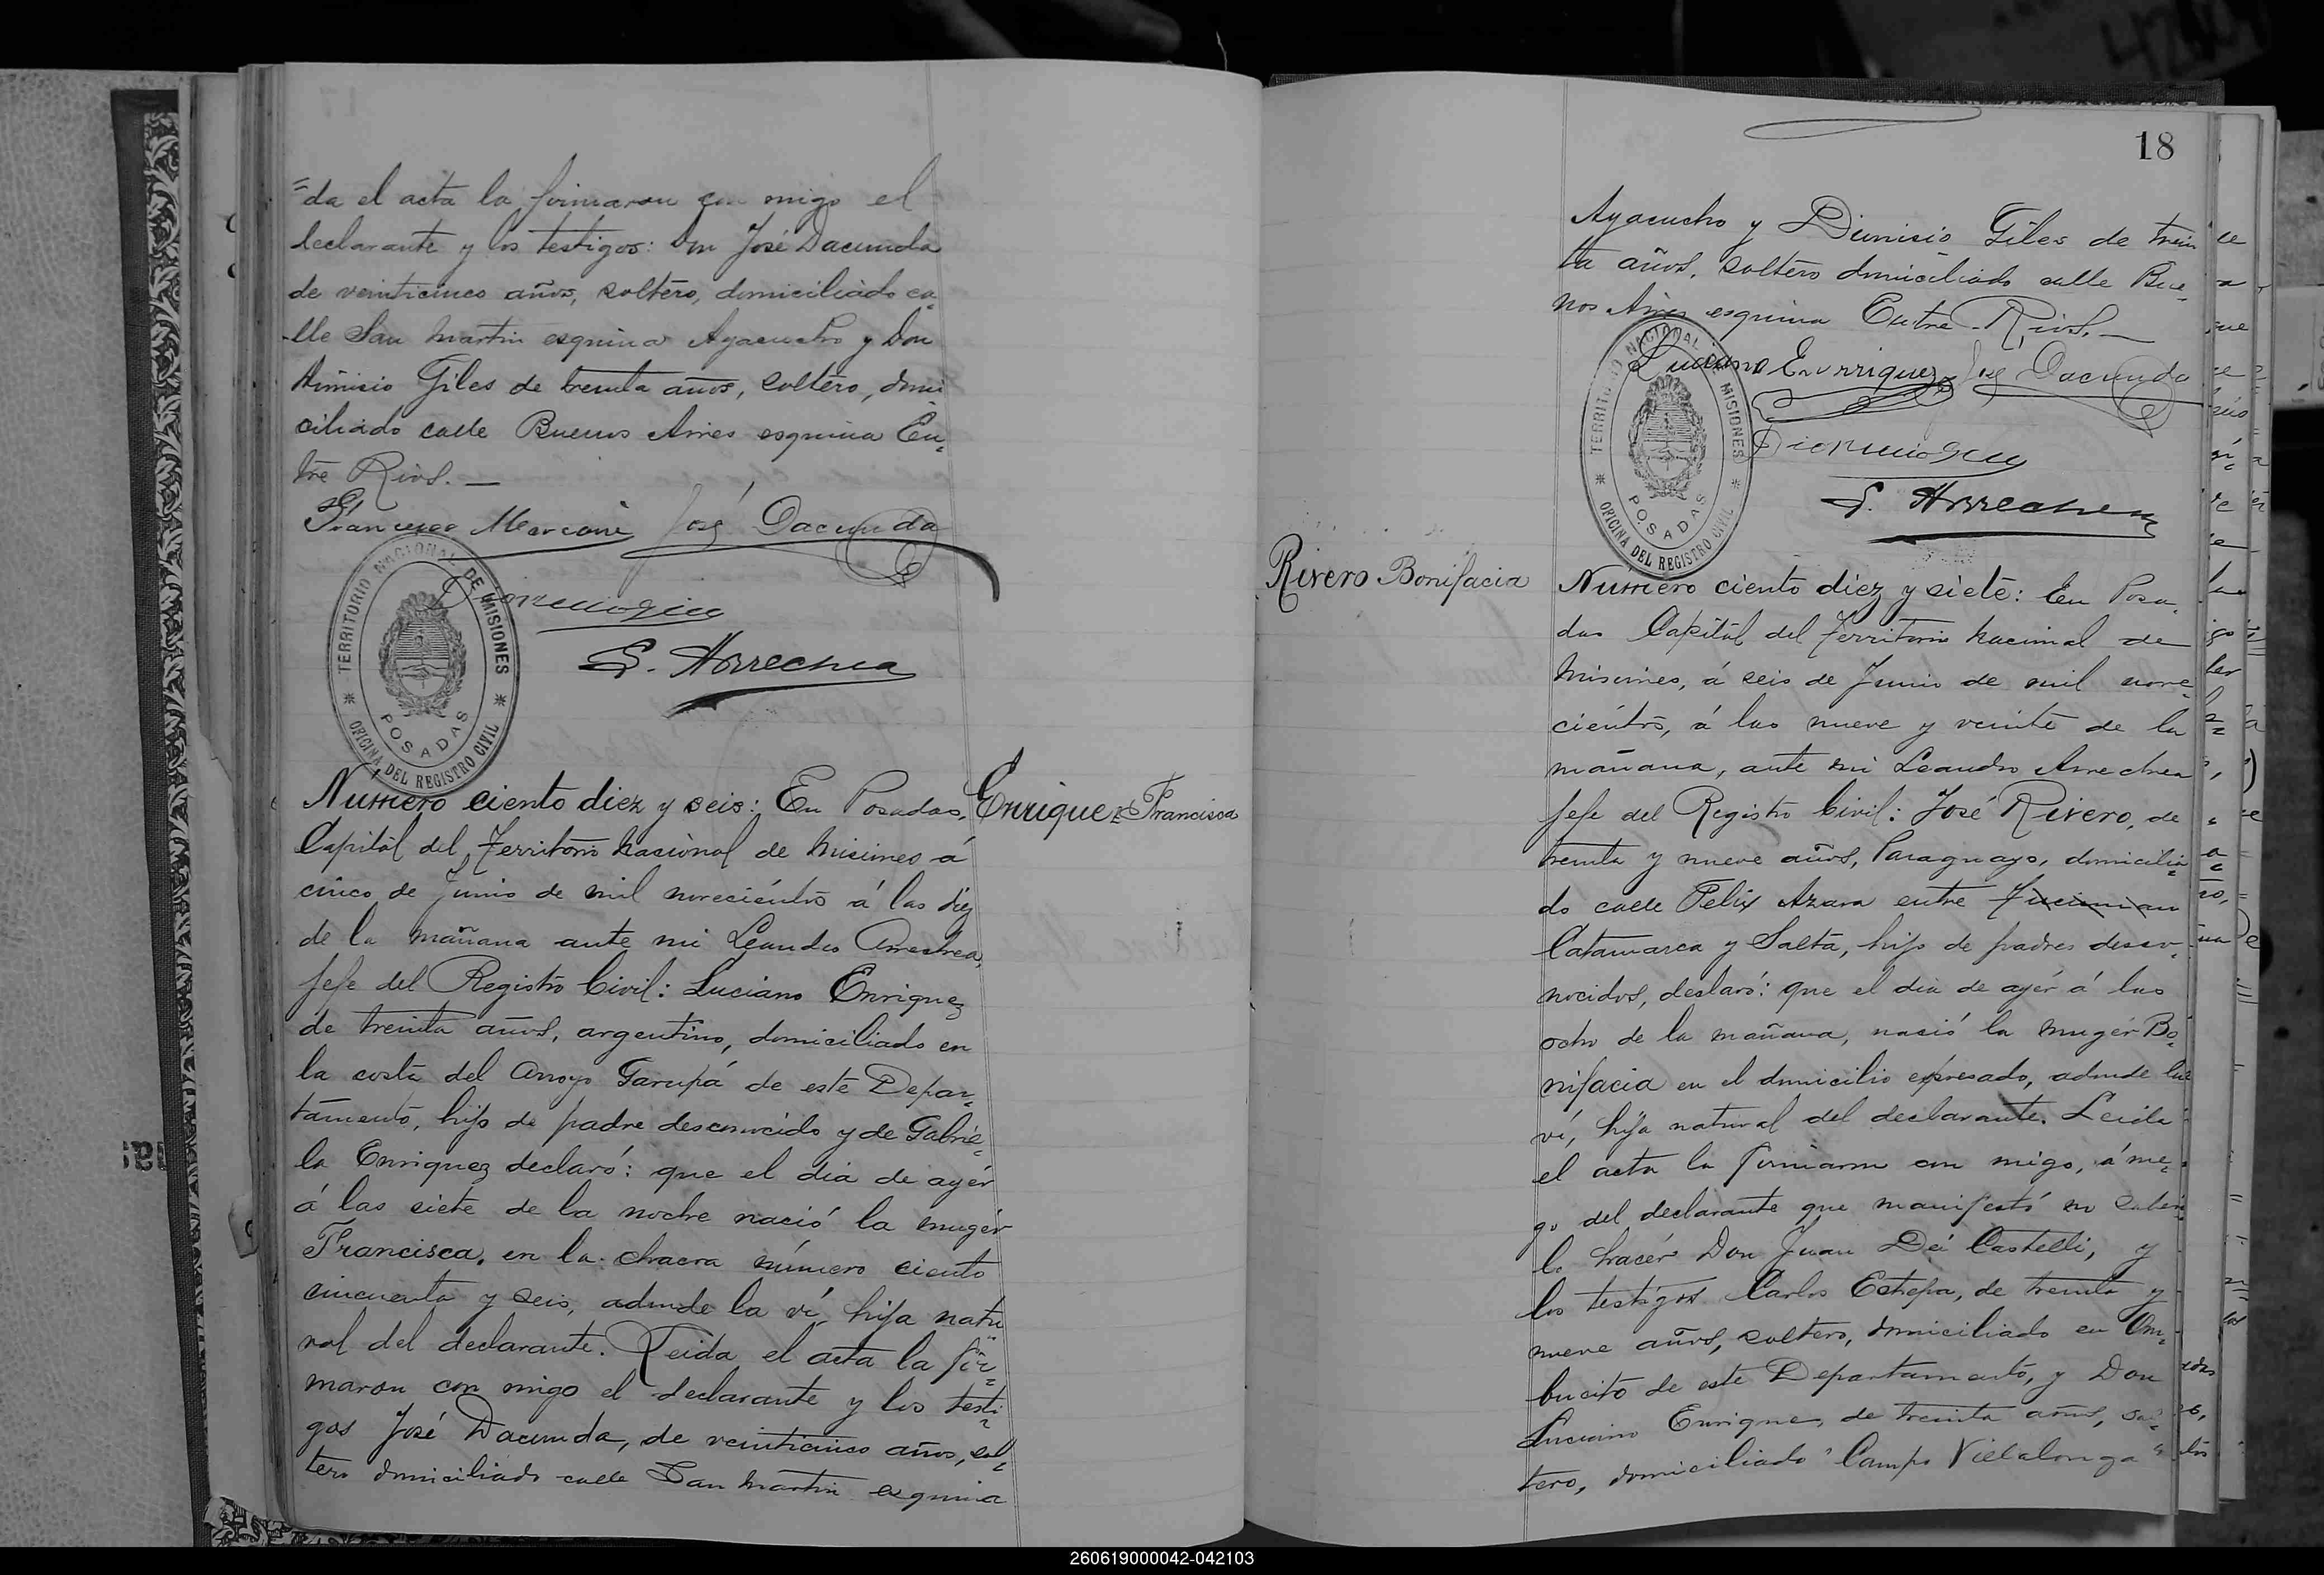 =da el acta la firmaron con migo el
declarante y los testigos: Don José Dacunda
de veinticinco años, soltero, domiciliado ca=
lle San Martin esquina Ayacucho y Don
Dionisio Giles de treinta años, soltero, domi
ciliado calle Buenos Aires esquina En=
tre Rios. —
Francisco Marconi José Dacunda
TERRITORIO NACIONAL DE MISIONES
* OFICINA DEL REGISTRO CIVIL *
POSADAS
L. Arrechea
Número ciento diez y seis: En Posadas,
Enriquez Francisca
Capitál del Territorio Nacional de Misiones á
cinco de Junio de mil noreciéntos á las diez
de la mañana ante mi Leandro Arrechea,
Jefe del Registro Civil: Luciano Enriquez
de treinta años, argentino, domiciliado en
la costa del Arroyo Garupá de este Depar=
tamento, hijo de padre desconocido y de Gabrie=
la Enriquez declaró: que el dia de ayér
á las siete de la noche nació la mugér
Francisca, en la chacra número ciento
cincuenta y seis, adonde la ví, hija natu
ral del declarante. Leida el acta la fir=
maron con migo el declarante y los testi=
gos José Dacunda, de veinticinco años, sol=
tero domiciliado calle San Martin esquina
18
Ayacucho y Dionisio Giles de trein
ta años, soltero domiciliado calle Bue=
nos Aires esquina Entre Rios. —
Luciano Enrriquez José Dacunda
TERRITORIO NACIONAL MISIONES
* OFICINA DEL REGISTRO CIVIL *
POSADAS
L. Arrechea
Rivero Bonifacia
Número ciento diez y siete: En Posa=
das Capitál del Territorio Nacional de
Misiones, á seis de Junio de mil nove=
cientos, á las nueve y veinte de la
mañana, ante mi Leandro Arrechea
Jefe del Registro Civil: José Rivero, de
treinta y nueve años, Paraguayo, domicilia=
do calle Felix Azara entre
Catamarca y Salta, hijo de padres desco=
nocidos, declaró: que el dia de ayér á las
ocho de la mañana, nació la mugér Bo=
nifacia en el domicilio expresado, adonde la
ví, hija natural del declarante. Leida
el acta la firmaron con migo, á rue=
go del declarante que manifestó no saber
lo hacér Don Juan Dei Castelli, y
los testigos Carlos Estepa, de treinta y
nueve años, soltero, domiciliado en Om=
bucito de este Departamento, y Don
Luciano Enrique, de treinta años, sol=
tero, domiciliado "Campo Villalonga"
260619000042-042103